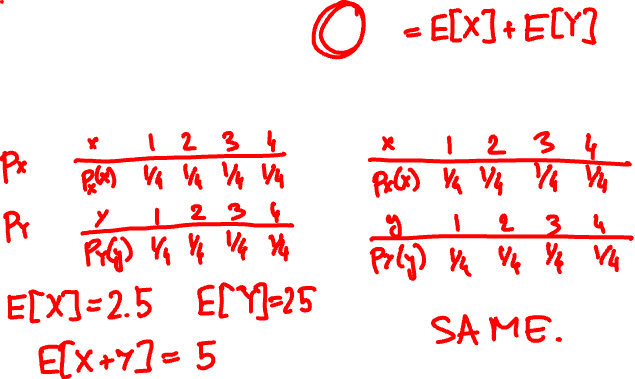 = E[X] + E[Y]
Px x 1 2 3 4
Px(x) 1/4 1/4 1/4 1/4
PY y 1 2 3 4
PY(y) 1/4 1/4 1/4 1/4
E[X]=2.5 E[Y]=25
E[X+Y]= 5
x 1 2 3 4
Px(x) 1/4 1/4 1/4 1/4
y 1 2 3 4
PY(y) 1/4 1/4 1/4 1/4
SAME.